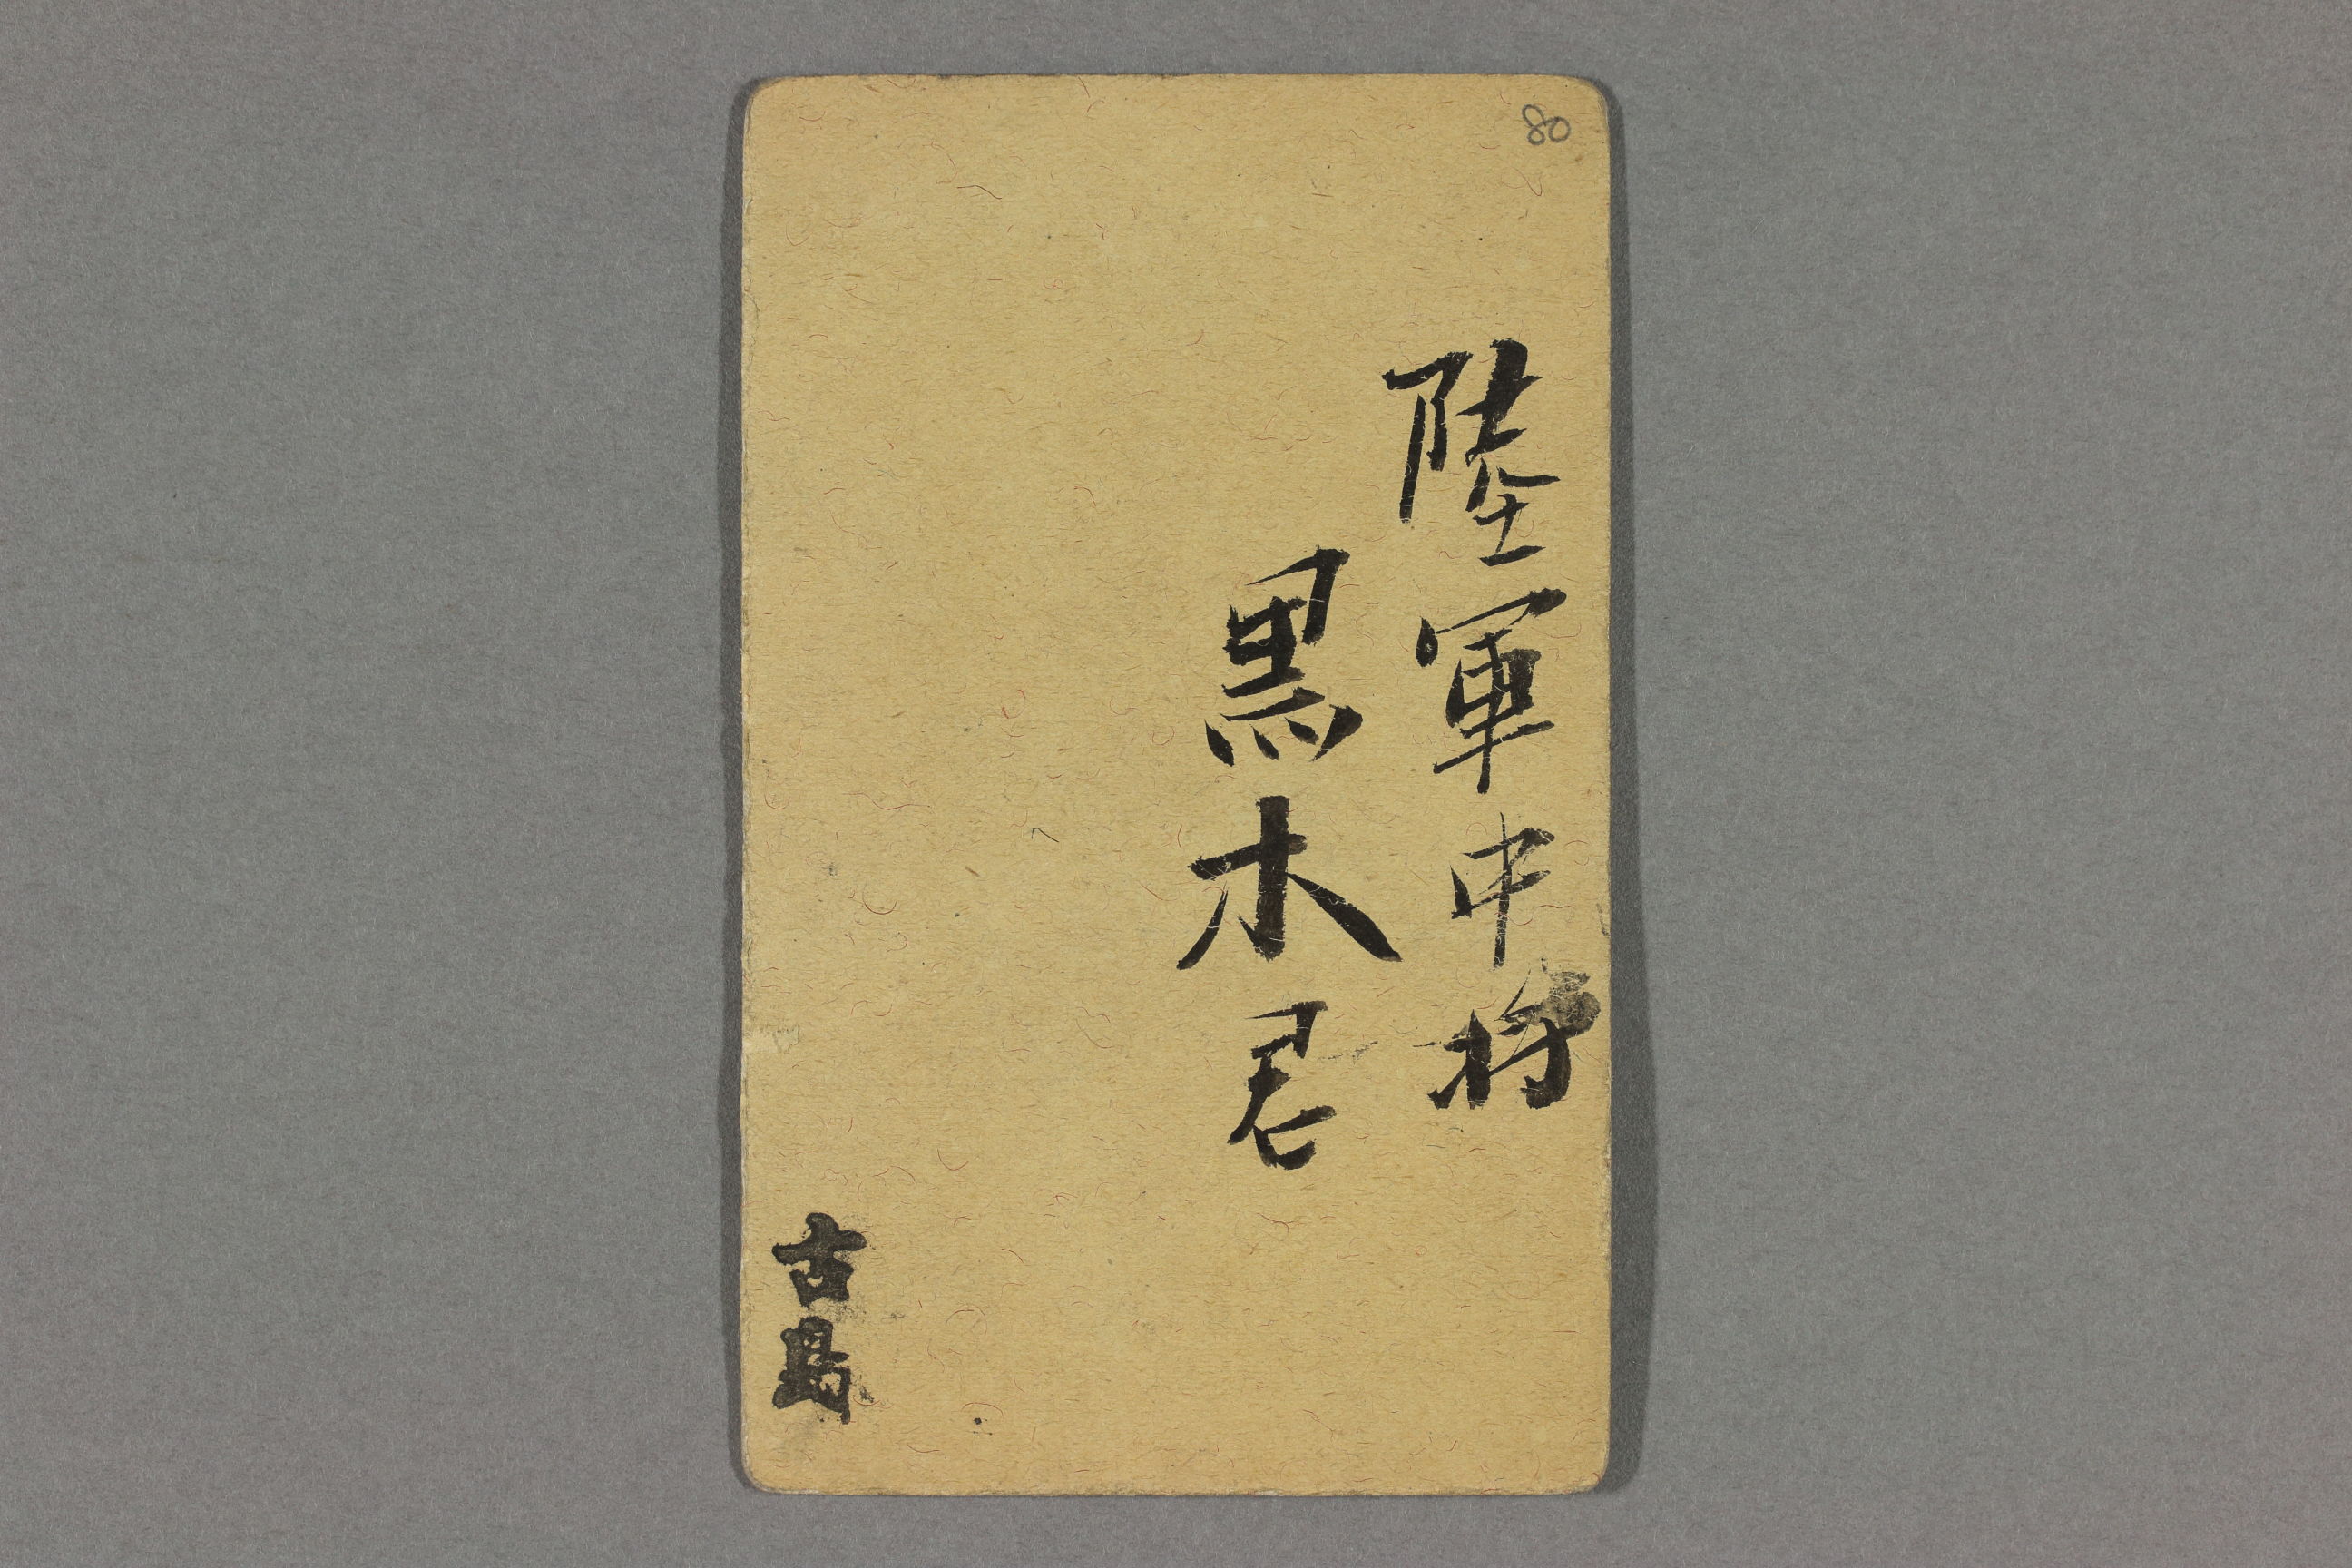 80
陸軍中将
黒木君
古島